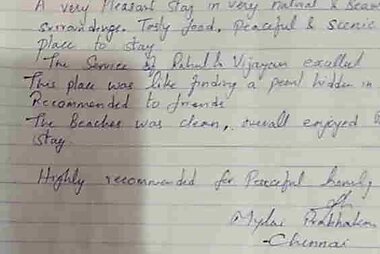 A very Pleasant Stay in very natural & Beau
surroundings. Tasty food, Peaceful & Scenic
place to stay.
- The Service of Rahul & Vijayan excellent
This place was like finding a pearl hidden in
Recommended to friends
The Beaches was clean, overall enjoyed
Stay.
Highly recommended for Peaceful family
Prabhakar
- Chennai